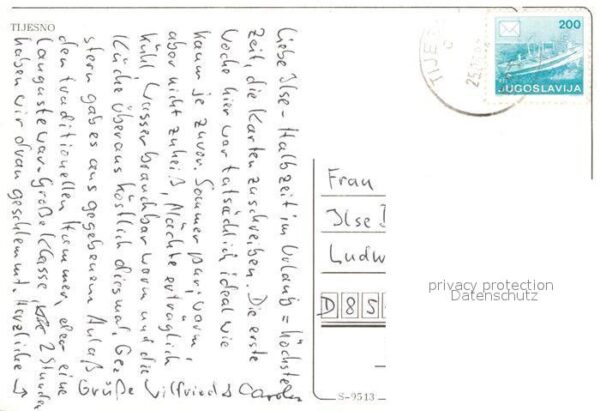 TIJESNO
Liebe Ilse - Halbzeit im Urlaub = höchste
Zeit, die Karten zu schreiben. Die erste
Woche hier war tatsächlich ideal wie
kaum je zuvor. Sommer pur, warm,
aber nicht zu heiß, Nächte erträglich
kühl, Wasser brauchbar warm und die
Küche überaus köstlich diesmal. Ge-
stern gab es aus gegebenem Anlaß
den traditionellen Hummer, der eine
Languste war. Große Klasse, 2 Stunden
haben wir dran geschlemmt. Herzliche →
Grüße Wilfried & Carola
TIJES
25.
200
JUGOSLAVIJA
Frau
Ilse
Ludw
D 8 5
privacy protection
Datenschutz
S-9513